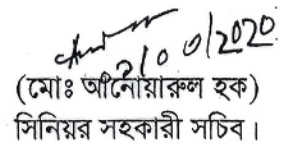 ২/০৩/2020
(মোঃ আনোয়ারুল হক)
সিনিয়র সহকারী সচিব।